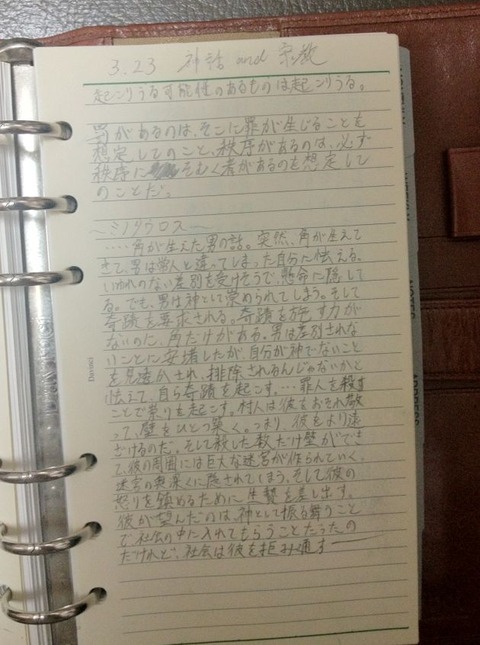 3.23 神話 and 宗教
起こりうる可能性のあるものは起こりうる。
罰があるのは、そこに罪が生じることを
想定してのこと、秩序があるのは、必ず
秩序に そむく者があるのを想定して
のことだ。
〜ミノタウロス〜
‥‥角が生えた男の話。突然、角が生えて
きて、男は常人と違ってしまった自分に怯える、
いわれのない差別を受けそうで、懸命に隠して
る。でも、男は神として崇められてしまう。そして
奇蹟を要求される。奇蹟を施す力が
ないのに、角だけがある。男は差別されな
いことに安堵したが、自分が神でないこと
を見透かされ、排除されるんじゃないかと
怯えて、自ら奇蹟を起こす。‥‥罪人を殺す
ことで祟りを起こす。村人は彼をおそれ敬
って、壁をひとつ築く。つまり、彼をより遠
ざけるのだ。そして殺した数だけ壁ができ
て、彼の周囲には巨大な迷宮が作られていく、
迷宮の奥深くに廃されてしまう、そして彼の
怒りを鎮めるために生贄を差し出す。
彼が望んだのは、神として振る舞うこと
で、社会の中に入れてもらうことだったの
だけれど、社会は彼を拒み通す――
Daemei
NOTES
ADDRESS